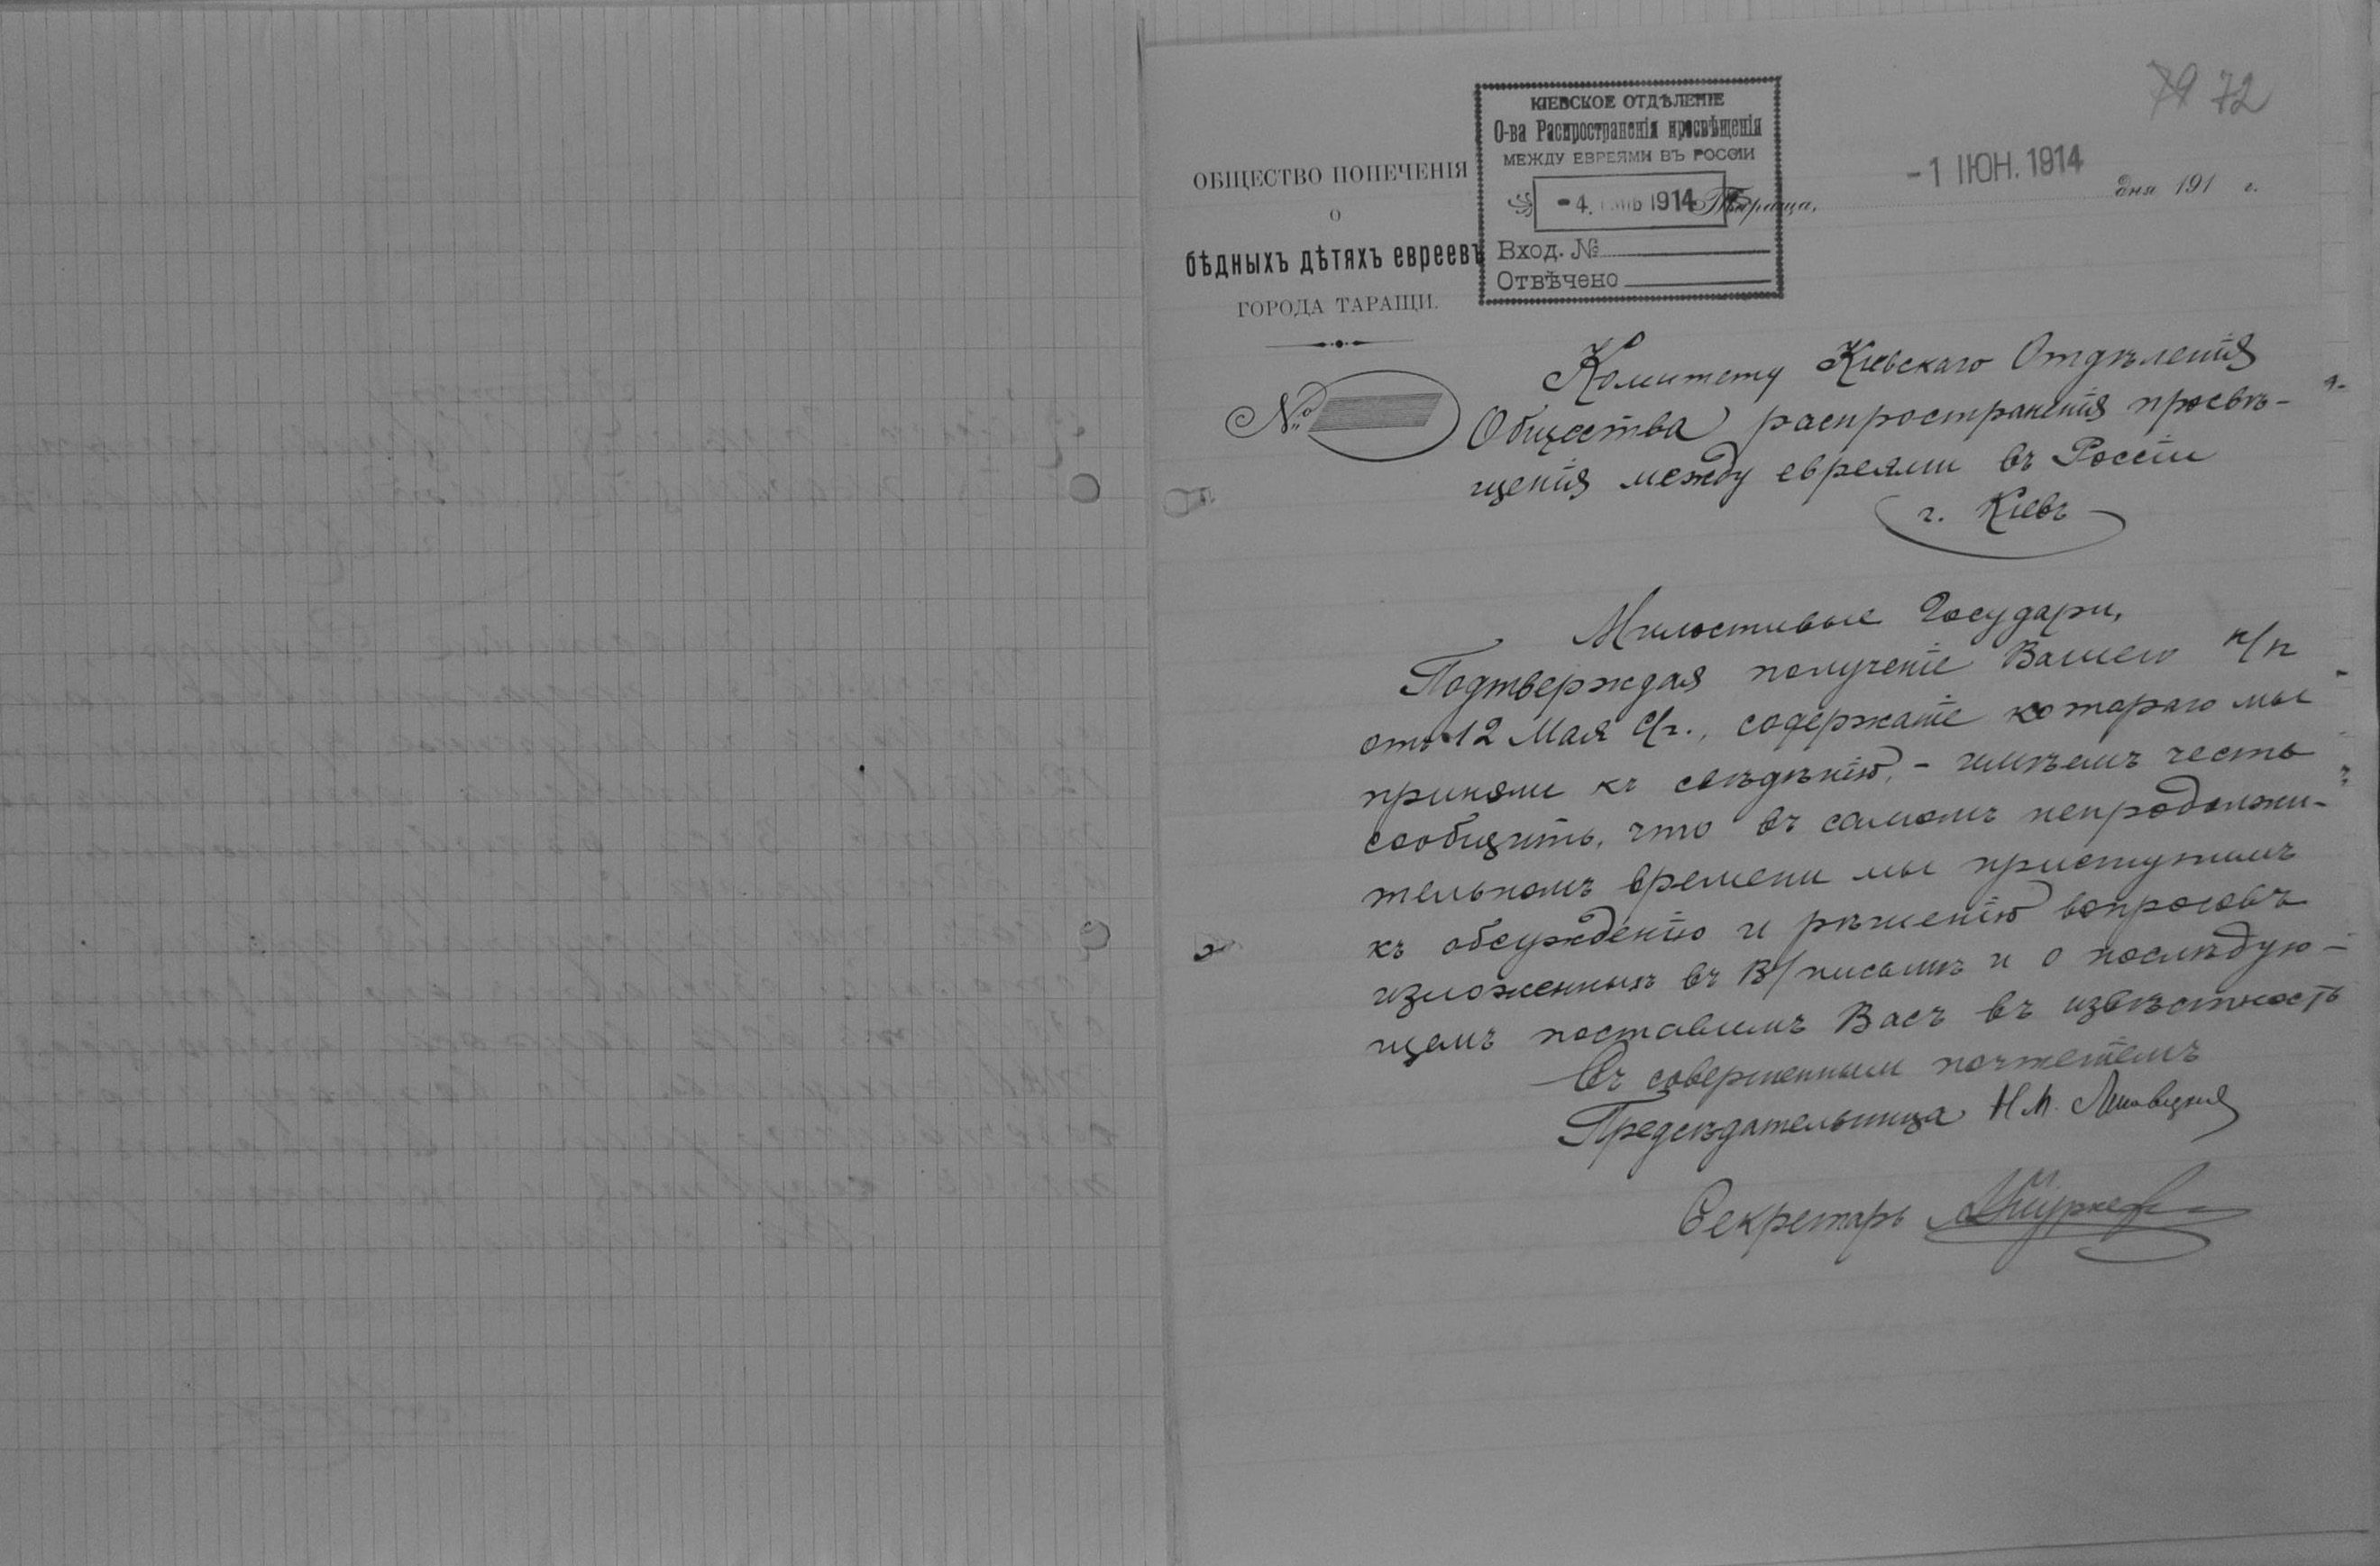 72
КІЕВСКОЕ ОТДѢЛЕНІЕ
О-ва Распространенія просвѣщенія
МЕЖДУ ЕВРЕЯМИ ВЪ РОССІИ
- 4. 1914
Вход. №
Отвѣчено
ОБЩЕСТВО ПОПЕЧЕНІЯ
О
бѣдныхъ дѣтяхъ евреевъ
ГОРОДА ТАРАЩИ.
№
Тараща, -1 ІЮН. 1914 дня 191 г.
Комитету Кіевскаго Отдѣленія
Общества распространенія просвѣ-
щенія между евреями въ Россіи
г. Кіевъ
Милостивые Государи,
Подтверждая полученіе Вашего п/п
отъ 12 Мая с/г., содержаніе котораго мы
приняли къ свѣдѣнію, - имѣемъ честь
сообщить, что въ самомъ непродолжи-
тельномъ времени мы приступимъ
къ обсужденію и рѣшенію вопросовъ
изложенныхъ въ В/письмѣ и о послѣдую-
щемъ поставимъ Васъ въ извѣстность
Съ совершеннымъ почтеніемъ
Предсѣдательница Н. М.
Секретарь